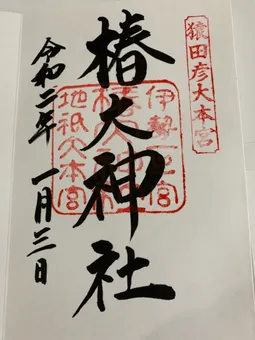 猿田彦大本宮
伊勢一之宮
椿大神社
地祇大本宮
令和二年一月三日